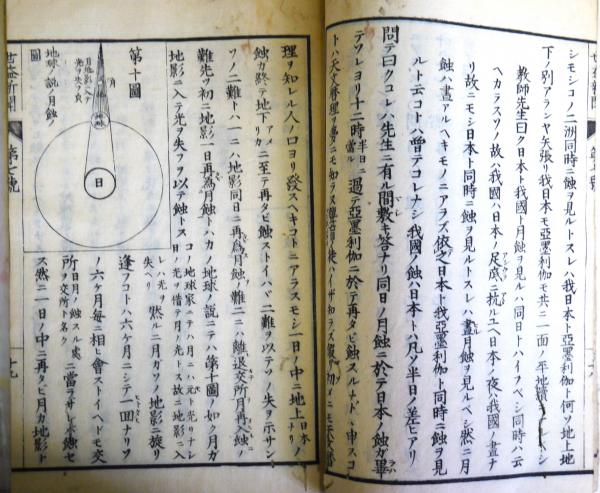 シモシコノ二洲同時ニ蝕ヲ見ルトスレハ我日本ト亞墨利伽ト何ソ地上地
下ノ別アランヤ矢張リ我日本モ亞墨利伽モ共ニ一面ノ平地
教師先生曰ク日本ト同時ニ月蝕ヲ見ルハ同日トハイフベシ同時ハ云
ヘカラスソノ故ハ我國ハ日本ノ足底ニ抗ルユヘ日本ノ夜ハ我國ノ晝ナ
リ故ニモシ日本ト同時ニ蝕ヲ見ルトスレハ晝月蝕ヲ見ルベシ然ニ月
蝕ハ晝アルヘキモノニアラズ依之日本ト我亞墨利伽ト同時ニ蝕ヲ見
ルト云コトハ曽テコレナシ我國ノ蝕ハ日本トハ凡ソ半日ノ差ヒアリ
問テ曰クコレハ先生ニ有ル間敷キ答ナリ同日ノ月蝕ニ於テ日本ノ蝕カ畢
テソレヨリ十二時半日ニ當ル過テ亞墨利伽ニ於テ再タヒ蝕スルナドヽ申スコ
トハ天文暦理ヲ夢ニモ知ラス
理ヲ知レル人ノ口ヨリ發スヘキコトニアラスモシ一日ノ中ニ地上日本ノナリ
蝕カ終テ地下アメリカニ至テ再タビ蝕ストイハヾ二難ヲ以テソノ失ヲ示サン
ソノ二難トハ一ニハ地影同日ニ再爲月蝕ノ難二ニハ離退交所月再入蝕ノ
難先ツ初ニ地影一日再爲月蝕トハカノ地球ノ説ニテハ第十圖ノ如ク月カ
地影ニ入テ光ヲ失フヲ以テ蝕トス
コノ地球家ニテハ月ニハ元ト光リナシ
日ノ光ヲ借テ月ノ光トス故ニ地影ニ入
レハ光ヲ失ヘリ
然ルニ月カソノ地影ニ旋リ
逢フコトハ六ケ月ニシテ一回ナリソ
ノ六ケ月毎ニ相ヒ會ストイヘトモ交
所日月ノ蝕スル處ヲ交所ト名クニ當ラサレハ蝕セ
ス然ニ一日ノ中ニ再タヒ月カ地影ト
第十圖
月
地球
日
月地影ニ入テ光ヲ失フ圖
地球ノ説ノ月蝕ノ圖
世益新聞
第七號
十九